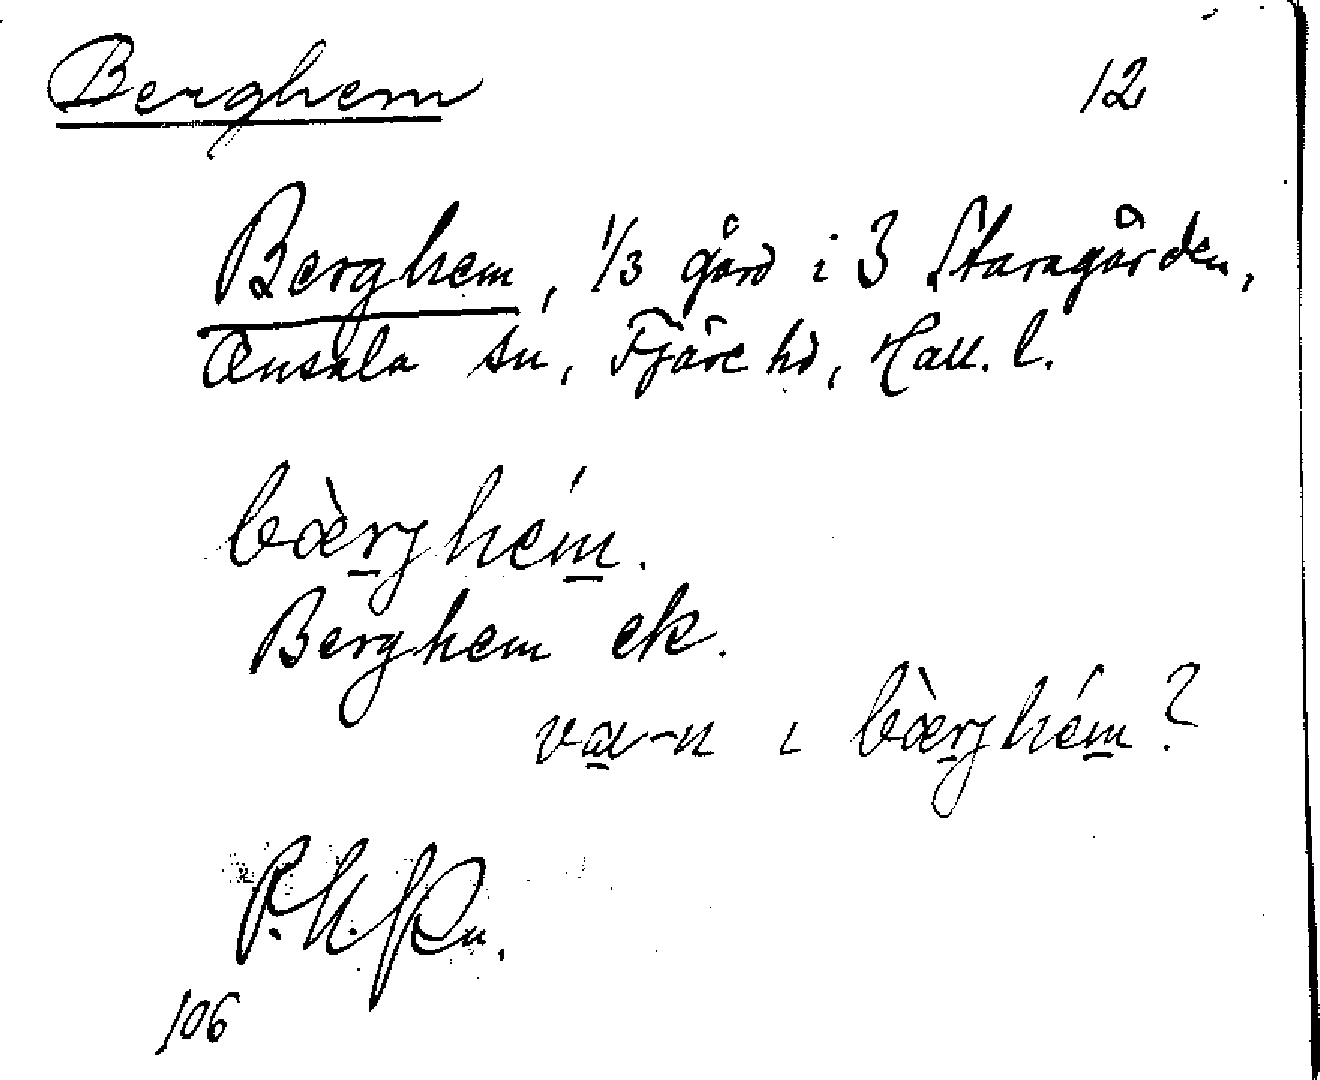 Berghem 12
Berghem, 1/3 gård i 3 Staragården,
Ŏnsala sn, Fjäre hd, Hall. l.
bæ̀rghém.
Berghem ek.
va-n ɩ bæ̀rghém?
106